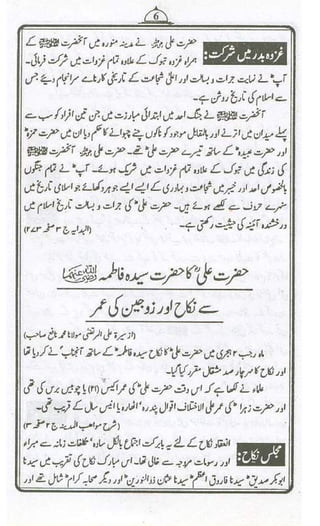 6
غزوہ بدر میں شرکت: حضرت علیؓ نے مدینہ منورہ میں آنحضرت ﷺ کے
ہمراہ غزوہ تبوک کے علاوہ تمام غزوات میں شرکت فرمائی۔
آپؓ نے نہایت جرات و بسالت اور اعلیٰ شجاعت کے تاریخی کارنامے سرانجام دیئے جس
سے اسلام کی تاریخ روشن ہے۔
آنحضرت ﷺ نے جنگ احد میں ابتدائی مبارزت میں جن تین افراد کو سب سے
پہلے میدان میں اترنے اور بالمقابل موجود کو ناکوں چنے چبوانے کا حکم دیا ان میں حضرت حمزہؓ
اور حضرت عبیدہؓ کے ساتھ تیسرے حضرت علیؓ تھے۔ حضرت علیؓ آنحضرت ﷺ
کی زندگی میں تبوک کے علاوہ تمام غزوات میں شریک ہوئے۔ آپؓ نے تمام جنگوں
بالخصوص احد اور خیبر میں شجاعت و بہادری کے ایسے ایسے جوہر دکھائے جو اسلامی تاریخ میں
سنہرے حروف سے لکھے ہوئے ہیں۔ حضرت علیؓ کی جرات و بسالت تاریخ اسلام میں
درخشندہ آئینہ کی حیثیت رکھتی ہے۔
(البدایہ ج ۳ صفحہ ۲۷۳)
حضرت علیؓ کا حضرت سیدہ فاطمہ رضی اللہ عنہما
سے نکاح اور زوجین کی عمر
(از سیرۃ علی المرتضیٰ مولانا محمد نافع صاحب)
ماہ رجب ۲ ہجری میں حضرت علیؓ کا نکاح سیدہ فاطمہؓ کے ساتھ آنجنابؐ نے کردیا تھا
اور نکاح کا مہر چار صد مثقال مقرر کیا گیا۔
علماء نے لکھا ہے کہ اس وقت حضرت علیؓ کی عمر اکیس (۲۱) یا چوبیس برس کی تھی
اور حضرت زہراؓ کی عمر علی الاختلاف اقوال پندرہ، اٹھارہ یا انیس سال کے قریب تھی۔
(شرح مواہب المدینہ ج ۲ صفحہ ۳)
مجلس نکاح: انعقاد نکاح کے لئے یہ بابرکت اجتماع بالکل سادہ، تکلفات زمانہ سے مبراء
اور رسومات مروجہ سے خالی تھا۔ اس مبارک نکاح کی تقریب میں سیدنا
ابوبکر صدیقؓ سیدنا فاروق اعظمؓ سیدنا عثمان ذوالنورینؓ اور دیگر صحابہ کرامؓ شامل تھے اور